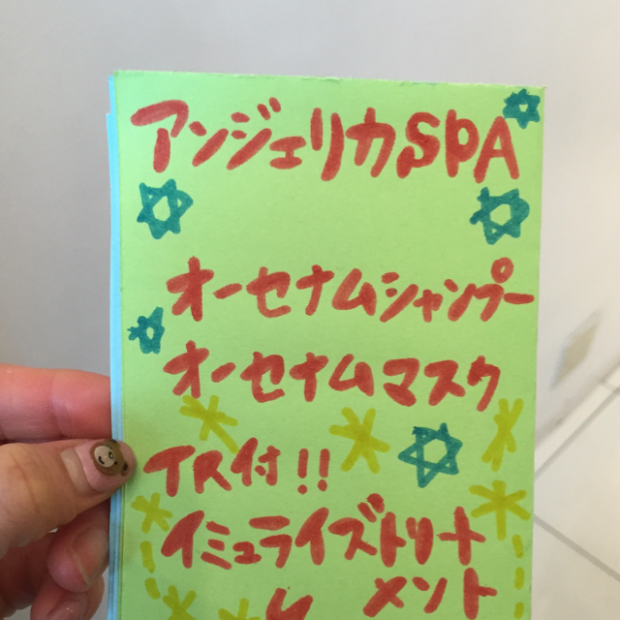 アンジェリカSPA
オーセナムシャンプー
オーセナムマスク
TR付!!
イミュライズトリート
メント